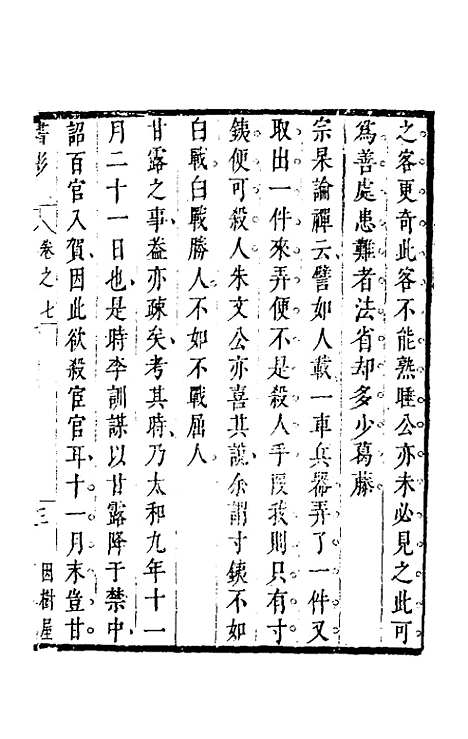 之客更奇此客不能熟睡公亦未必見之此可
爲善處患難者法省却多少葛藤
宗杲論禪云譬如人載一車兵器弄了一件又
取出一件來弄便不是殺人手段我則只有寸
鐵便可殺人朱文公亦喜其說余謂寸鐵不如
白戰白戰勝人不如不戰屈人
甘露之事葢亦疎矣考其時乃太和九年十一
月二十一日也是時李訓謀以甘露降于禁中
詔百官入賀因此欲殺宦官耳十一月末豈甘
書影 卷之七 三 因樹屋